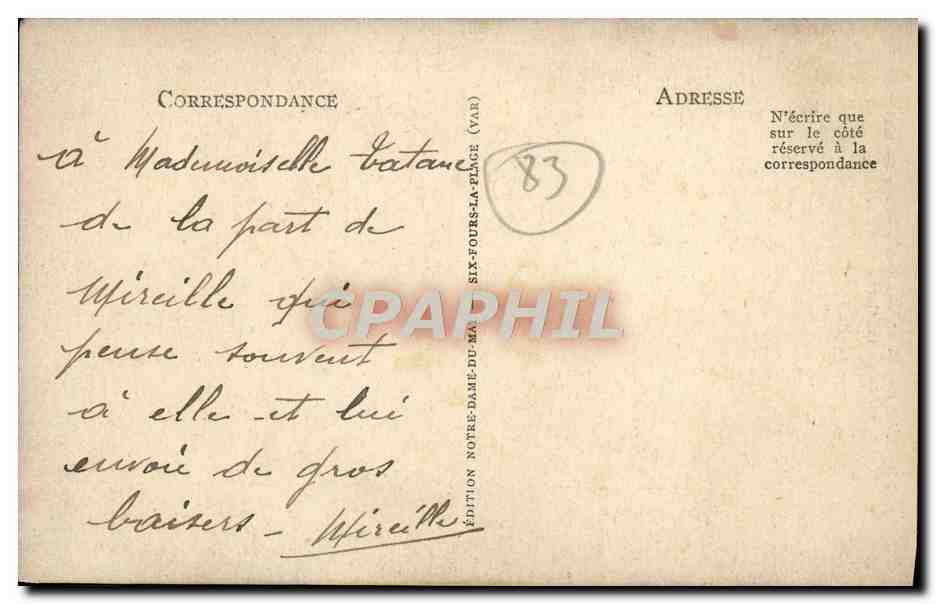 CORRESPONDANCE
à Mademoiselle Tatane
de la part de
Mireille qui
pense souvent
à elle et lui
envoie de gros
baisers - Mireille
ÉDITION NOTRE-DAME-DU-MAI SIX-FOURS-LA-PLAGE (VAR)
ADRESSE
N'écrire que
sur le côté
réservé à la
correspondance
83
CPAPHIL